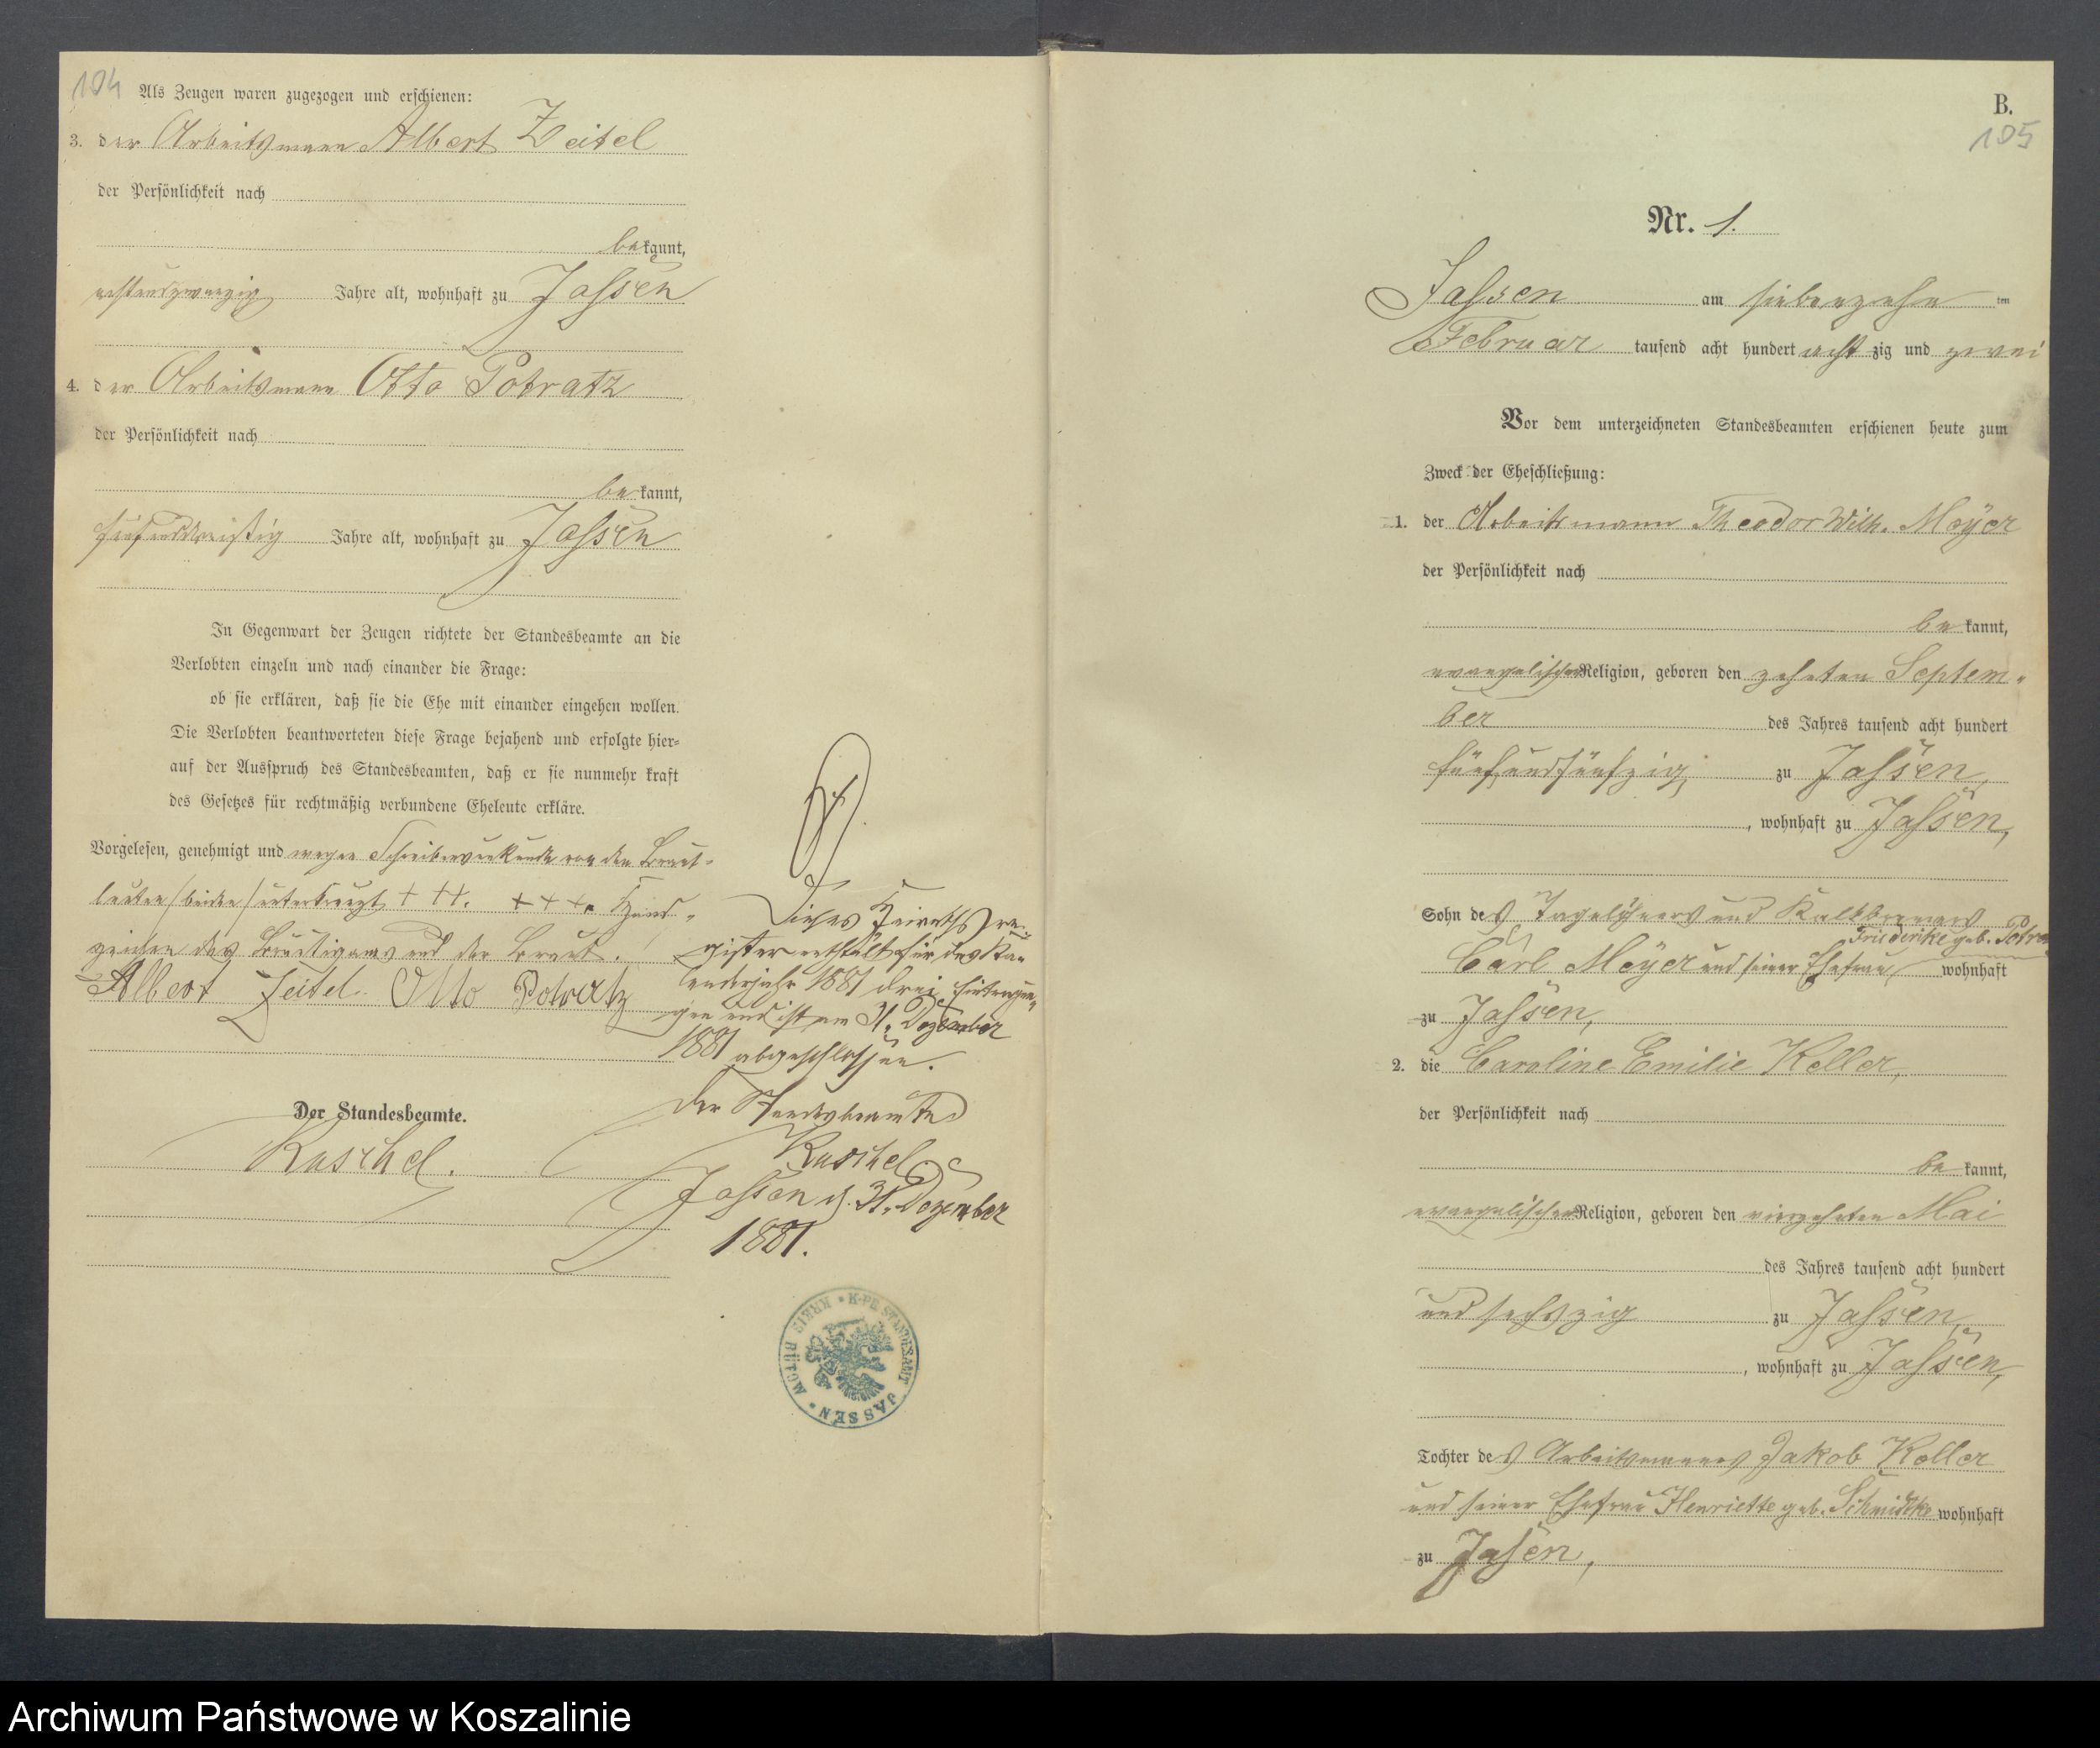 104
Als Zeugen waren zugezogen und erschienen:
3. der Arbeitsmann Albert Zeitel
der Persönlichkeit nach
bekannt,
achtundzwanzig Jahre alt, wohnhaft zu Jassen
4. der Arbeitsmann Otto Potratz
der Persönlichkeit nach
bekannt,
fünfunddreißig Jahre alt, wohnhaft zu Jassen
In Gegenwart der Zeugen richtete der Standesbeamte an die
Verlobten einzeln und nach einander die Frage:
ob sie erklären, daß sie die Ehe mit einander eingehen wollen.
Die Verlobten beantworteten diese Frage bejahend und erfolgte hier-
auf der Ausspruch des Standesbeamten, daß er sie nunmehr kraft
des Gesetzes für rechtmäßig verbundene Eheleute erkläre.
Vorgelesen, genehmigt und wegen Schreibensunkunde von den Braut-
leuten /beiden/ unterkreuzt + + +. + + +. Hand-
zeichen des Bräutigams und der Braut.
Albert Zeitel Otto Potratz
Der Standesbeamte.
Kuschel.
Dieses Heiraths re-
gister enthält für das Ka-
lenderjahr 1881 drei Eintragun-
gen und ist am 31. Dezember
1881 abgeschlossen.
Der Standesbeamte
Kuschel
Jassen d. 31. Dezember
1881.
K. PR. STANDESAMT JASSEN * KREIS BÜTOW *
B.
105
Nr. 1.
Jassen am siebenzehn ten
Februar tausend acht hundert achtzig und zwei
Vor dem unterzeichneten Standesbeamten erschienen heute zum
Zweck der Eheschließung:
1. der Arbeitsmann Theodor Wilh. Meyer
der Persönlichkeit nach
bekannt,
evangelischer Religion, geboren den zehnten Septem-
ber des Jahres tausend acht hundert
fünfundfünfzig, zu Jassen,
, wohnhaft zu Jassen,
Sohn des Tagelöhners und Kalkbrenners
Friederike geb. Potra
Carl Meyer und seiner Ehefrau wohnhaft
zu Jassen,
2. die Caroline Emilie Keller,
der Persönlichkeit nach
bekannt,
evangelischer Religion, geboren den vierzehnten Mai
des Jahres tausend acht hundert
und sechszig zu Jassen,
, wohnhaft zu Jassen,
Tochter des Arbeitsmanns Jakob Keller
und seiner Ehefrau Henriette geb. Schmidtke wohnhaft
zu Jassen,
Archiwum Państwowe w Koszalinie